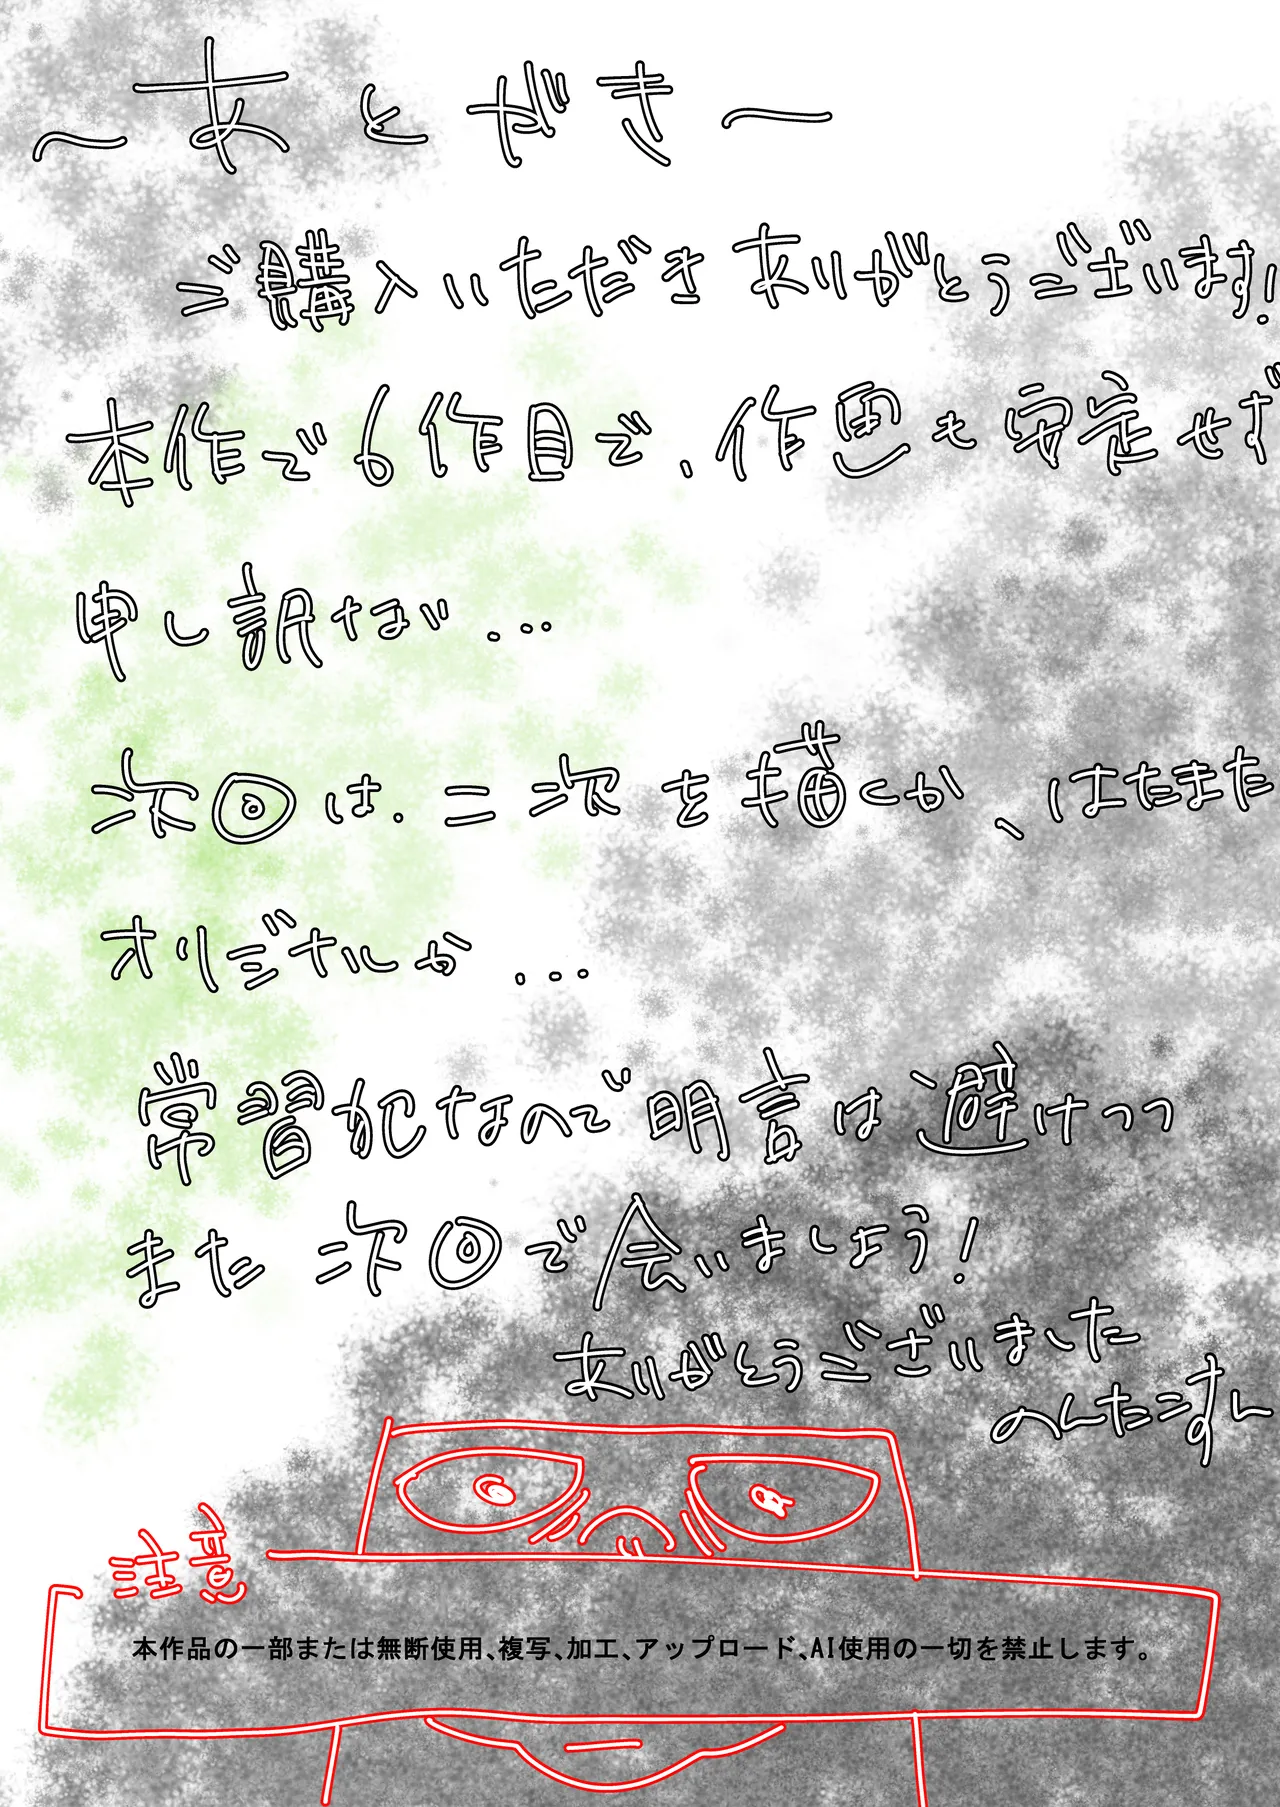 ～あとがき～
ご購入いただきありがとうございます!
本作で6作目で、作画も安定せず
申し訳ない...
次回は.二次を描くか、はたまた
オリジナルか...
常習犯なので明言は避けつつ
また次回で会いましょう!
ありがとうございました
のんたこすん
注意
本作品の一部または無断使用、複写、加工、アップロード、AI使用の一切を禁止します。